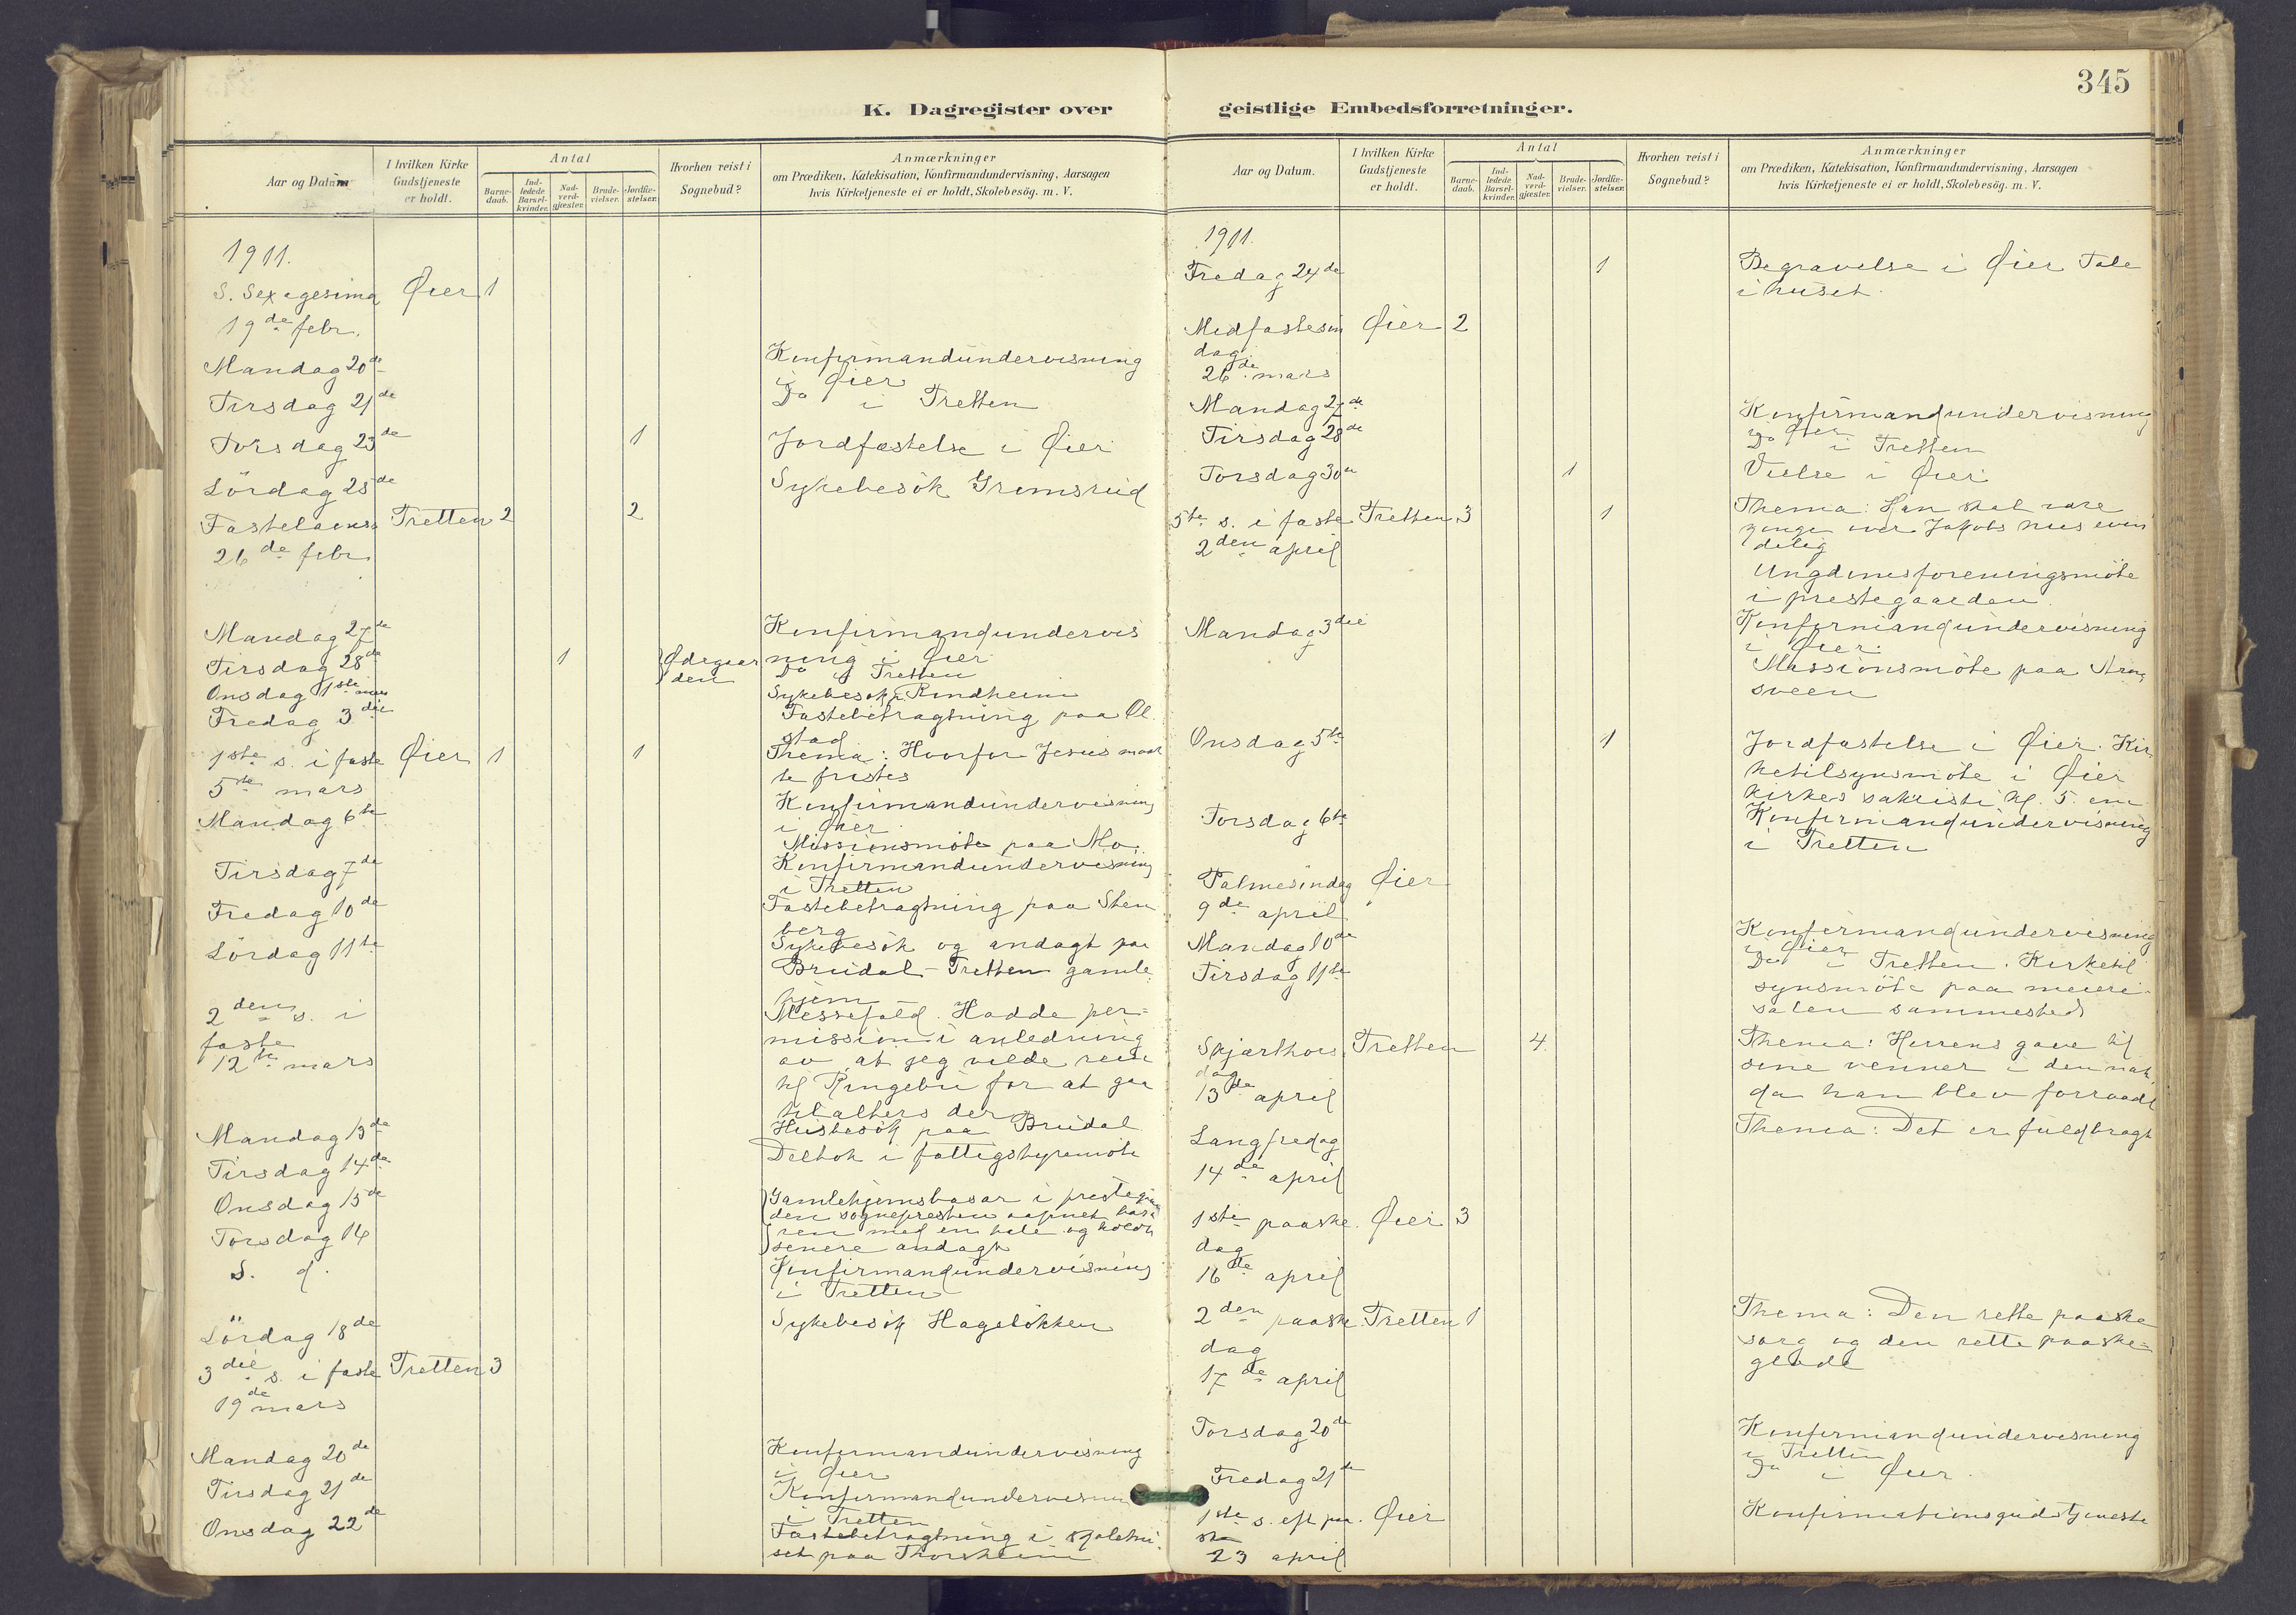 345
K. Dagregister over geistlige Embedsforretninger.
Aar og Datum
I hvilken Kirke Gudstjeneste er holdt.
Antal
Barne-daab.
Ind-ledede Barsel-kvinder.
Nad-verd-gjæster.
Brude-vielser.
Jordfæ-stelser.
Hvorhen reist i Sognebud?
Anmærkninger
om Prædiken, Katekisation, Konfirmandundervisning, Aarsagen
hvis Kirketjeneste ei er holdt, Skolebesög. m. V.
1911.
S. Sexagesima Øier 1
19de febr.
Mandag 20de Konfirmandundervisning
i Øier
Tirsdag 21de Do i Tretten
Torsdag 23de 1 Jordfæstelse i Øier
Lördag 25de Sykebesök Gremsrud
Fastelavns Tretten 2 2
26de febr.
Mandag 27de Konfirmandundervis
ning i Øier
Tirsdag 28de 1 Ødegaar
den
Do i Tretten
Onsdag 1ste mars Sykebesök Rindheim
Fredag 3die Fastebetragtning paa Øl
stad
1ste s. i faste Øier 1 1 Thema: Hvorfor Jesus maat
te fristes
5te mars
Mandag 6te Konfirmandundervisning
i Øier
Missionsmöte paa Mo
Tirsdag 7de Konfirmandundervisning
i Tretten
Fredag 10de Fastebetragtning paa Sten
berg
Lördag 11te Sykebesök og andagt paa
Breidal - Tretten gamle
hjem
2den s. i
faste
12te mars
Messefald. Hadde per-
mission i anledning
av at jeg vilde reise
til Ringebu for at gaa
til alters der
Mandag 13de Husbesök paa Breidal
Tirsdag 14de Deltok i fattigstyremöte
Onsdag 15de
Torsdag 16
Gamlehjemsbasar i prestegaar
den sognepresten aapnet basa
ren med en tale og holdt
senere andagt
S. d. Konfirmandundervisning
i Tretten
Lördag 18de Sykebesök Hagelökken
3die s. i faste Tretten 3
19de mars
Mandag 20de Konfirmandundervisning
i Øier
Tirsdag 21de Konfirmandundervisning
i Tretten
Onsdag 22de Fastebetragtning i skolehu
set paa Thorsheim
Aar og Datum.
I hvilken Kirke Gudstjeneste er holdt.
Antal
Barne-daab.
Ind-ledede Barsel-kvinder.
Nad-verd-gjæster.
Brude-vielser.
Jordfæ-stelser.
Hvorhen reist i Sognebud?
Anmærkninger
om Prædiken, Katekisation, Konfirmandundervisning, Aarsagen
hvis Kirketjeneste ei er holdt, Skolebesög. m. V.
1911.
Fredag 24de 1 Begravelse i Øier Tale
i huset.
Midfastesön Øier 2
dag
26de mars
Mandag 27de Konfirmandundervisning
i Øier
Tirsdag 28de Do i Tretten
Torsdag 30te 1 Vielse i Øier
5te s. i faste Tretten 3 1 Thema: Han skal være
konge over Jakobs hus evin
delig
2den april
Ungdomsforeningsmöte
i prestegaarden.
Mandag 3die Konfirmandundervisning
i Øier.
Missionsmöte paa
sveen
Onsdag 5te 1 Jordfæstelse i Øier. Kir
ketilsynsmöte i Øier
kirkes sakristi kl. 5. em
Torsdag 6te Konfirmandundervisning
i Tretten
Palmesöndag Øier
9de april
Mandag 10de Konfirmandundervisning
i Øier
Tirsdag 11te Do i Tretten. Kirketil
synsmöte paa meieri-
salen sammesteds
Skjærthors Tretten 4
dag
13de april
Thema: Herrens gave til
sine venner i den nat,
da han blev forraadt
Langfredag Thema: Det er fuldbragt
14de april
1ste paaske. Øier 3
dag
16de april
2den paaske. Tretten 1
dag
17de april
Thema: Den rette paaske
sorg og den rette paaske-
glæde
Torsdag 20de Konfirmandundervisning
i Tretten
Fredag 21de Do i Øier.
1ste s. eft paa. Øier Konfirmationsgudstjeneste
ske
23 april